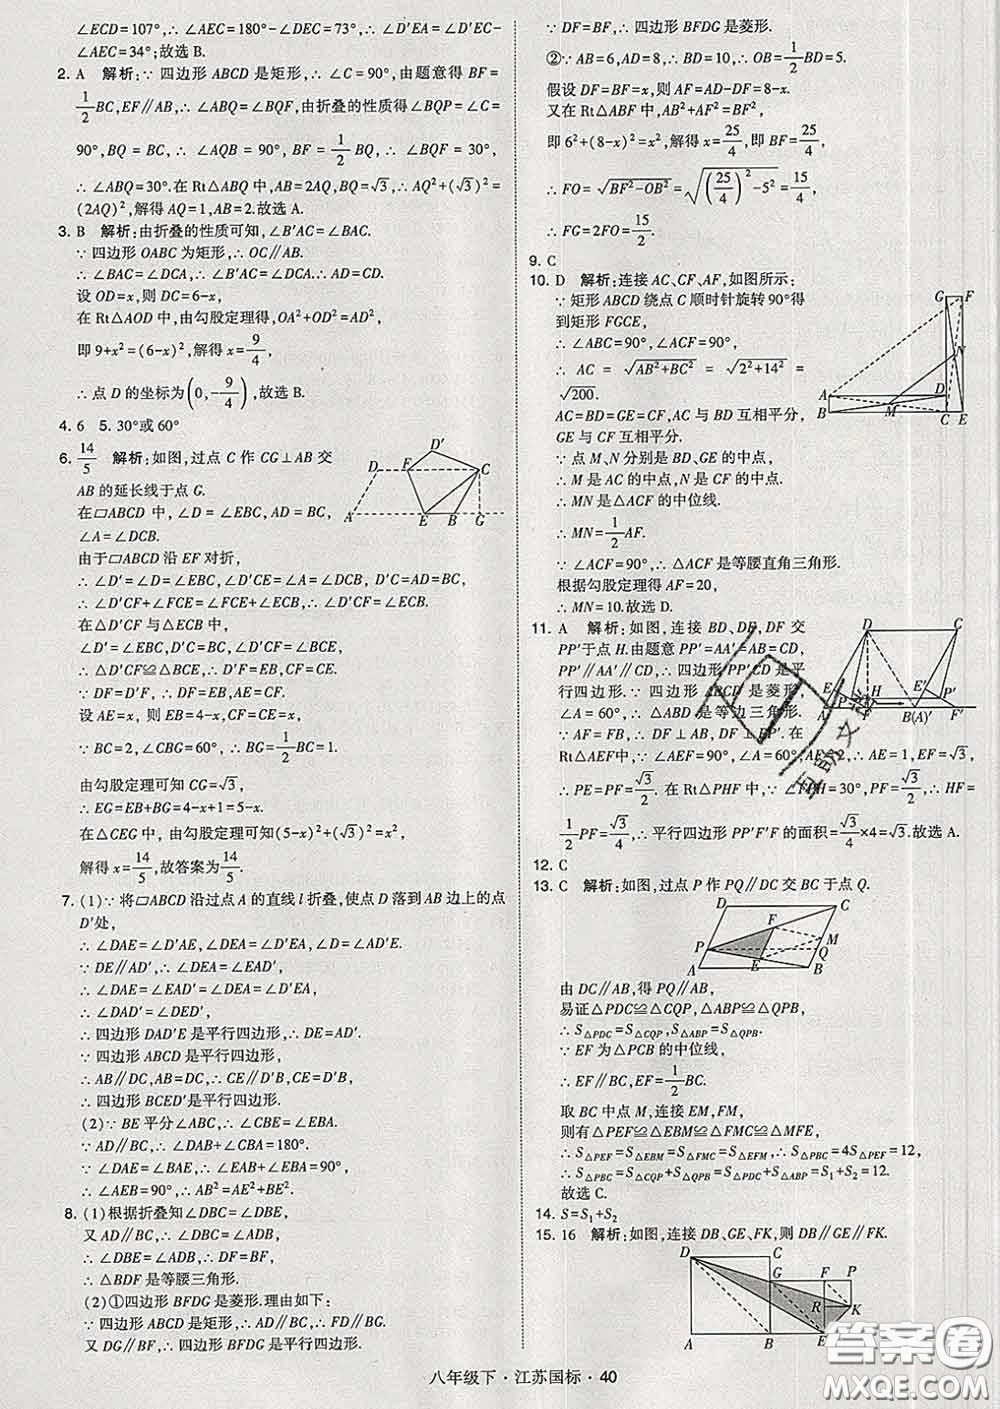 ∠ECD=107°,∴∠AEC=180°-∠DEC=73°,∴∠D'EA=∠D'EC-
∠AEC=34°;故选 B.
2. A 解析:∵四边形 ABCD 是矩形,∴∠C=90°,由题意得 BF=
1/2BC,EF∥AB,∴∠ABQ=∠BQF,由折叠的性质得∠BQP=∠C=
90°,BQ=BC,∴∠AQB=90°,BF=1/2BQ,∴∠BQF=30°,
∴∠ABQ=30°.在 Rt△ABQ 中,AB=2AQ,BQ=√3,∴AQ²+(√3)²=
(2AQ)²,解得 AQ=1,AB=2.故选 A.
3. B 解析:由折叠的性质可知,∠B'AC=∠BAC.
∵四边形 OABC 为矩形,∴OC∥AB.
∴∠BAC=∠DCA,∴∠B'AC=∠DCA,∴AD=CD.
设 OD=x,则 DC=6-x,
在 Rt△AOD 中,由勾股定理得,OA²+OD²=AD²,
即 9+x²=(6-x)²,解得 x=9/4,
∴点 D 的坐标为(0,-9/4),故选 B.
4. 6 5. 30°或 60°
6. 14/5 解析:如图,过点 C 作 CG⊥AB 交
AB 的延长线于点 G.
在▱ABCD 中,∠D=∠EBC,AD=BC,
∠A=∠DCB.
由于▱ABCD 沿 EF 对折,
∴∠D'=∠D=∠EBC,∠D'CE=∠A=∠DCB,D'C=AD=BC.
∴∠D'CF+∠FCE=∠FCE+∠ECB,∴∠D'CF=∠ECB.
在△D'CF 与△ECB 中,
∴△D'CF≌△ECB,∴D'F=EB,CF=CE.
∵DF=D'F,∴DF=EB,AE=CF.
设 AE=x,则 EB=4-x,CF=x.
∵BC=2,∠CBG=60°,∴BG=1/2BC=1.
由勾股定理可知 CG=√3,
∴EG=EB+BG=4-x+1=5-x.
在△CEG 中,由勾股定理可知(5-x)²+(√3)²=x²,
解得 x=14/5,故答案为14/5.
7. (1)∵将▱ABCD 沿过点 A 的直线 l 折叠,使点 D 落到 AB 边上的点
D'处,
∴∠DAE=∠D'AE,∠DEA=∠D'EA,∠D=∠AD'E.
∵DE∥AD',∴∠DEA=∠EAD',
∴∠DAE=∠EAD'=∠DEA=∠D'EA,
∴∠DAD'=∠DED',
∴四边形 DAD'E 是平行四边形,∴DE=AD'.
∵四边形 ABCD 是平行四边形,
∴AB∥DC,AB=DC,∴CE∥D'B,CE=D'B,
∴四边形 BCED'是平行四边形.
(2)∵BE 平分∠ABC,∴∠CBE=∠EBA.
∵AD∥BC,∴∠DAB+∠CBA=180°.
∵∠DAE=∠BAE,∴∠EAB+∠EBA=90°,
∴∠AEB=90°,∴AB²=AE²+BE².
8. (1)根据折叠知∠DBC=∠DBE,
又 AD∥BC,∴∠DBC=∠ADB,
∴∠DBE=∠ADB,∴DF=BF,
∴△BDF 是等腰三角形.
(2)①四边形 BFDG 是菱形.理由如下:
∵四边形 ABCD 是矩形,∴AD∥BC,∴FD∥BG.
又 DG∥BF,∴四边形 BFDG 是平行四边形.
∵DF=BF,∴四边形 BFDG 是菱形.
②∵AB=6,AD=8,∴BD=10,∴OB=1/2BD=5.
假设 DF=BF=x,∴AF=AD-DF=8-x.
又在 Rt△ABF 中,AB²+AF²=BF²,
即 6²+(8-x)²=x²,解得 x=25/4,即 BF=25/4,
∴FO=√BF²-OB²=√(25/4)²-5²=15/4,
∴FG=2FO=15/2.
9. C
10. D 解析:连接 AC、CF、AF,如图所示:
∵矩形 ABCD 绕点 C 顺时针旋转 90°得
到矩形 FGCE,
∴∠ABC=90°,∠ACF=90°,
∴AC=√AB²+BC²=√2²+14²=
√200.
AC=BD=GE=CF,AC 与 BD 互相平分,
GE 与 CF 互相平分.
∵点 M、N 分别是 BD、GE 的中点,
∴M 是 AC 的中点,N 是 CF 的中点,
∴MN 是△ACF 的中位线.
∴MN=1/2AF.
∵∠ACF=90°,∴△ACF 是等腰直角三角形.
根据勾股定理得 AF=20,
∴MN=10.故选 D.
11. A 解析:如图,连接 BD、DE、DF 交
PP'于点 H.由题意 PP'=AA'=AB=CD,
PP'∥AA'∥CD,∴四边形 PP'CD 是平
行四边形.∵四边形 ABCD 是菱形,
∠A=60°,∴△ABD 是等边三角形.
∵AF=FB,∴DF⊥AB,DF⊥PP'.在
Rt△AEF 中,∵∠AEF=90°,∠A=60°,AF=2,∴AE=1,EF=√3,
∴PE=PF=√3/2.在 Rt△PHF 中,∵∠FPH=30°,PF=√3/2,∴HF=
1/2PF=√3/4,∴平行四边形 PP'F'F 的面积=√3/4×4=√3.故选 A.
12. C
13. C 解析:如图,过点 P 作 PQ∥DC 交 BC 于点 Q.
由 DC∥AB,得 PQ∥AB,
易证△PDC≌△CQP,△ABP≌△QPB,
∴S△PDC=S△CQP,S△ABP=S△QPB.
∵EF 为△PCB 的中位线,
∴EF∥BC,EF=1/2BC.
取 BC 中点 M,连接 EM,FM,
则有△PEF≌△EBM≌△FMC≌△MFE,
∴S△PEF=S△EBM=S△FMC=S△EMF,∴S△PBC=4S△PEF=12,
∴S△PBC=S△CQP+S△QPB=S△PDC+S△ABP=S1+S2=12.
故选 C.
14. S=S1+S2
15. 16 解析:如图,连接 DB、GE、FK,则 DB∥GE∥FK.
八年级下·江苏国标·40
答案圈
MXQE.COM